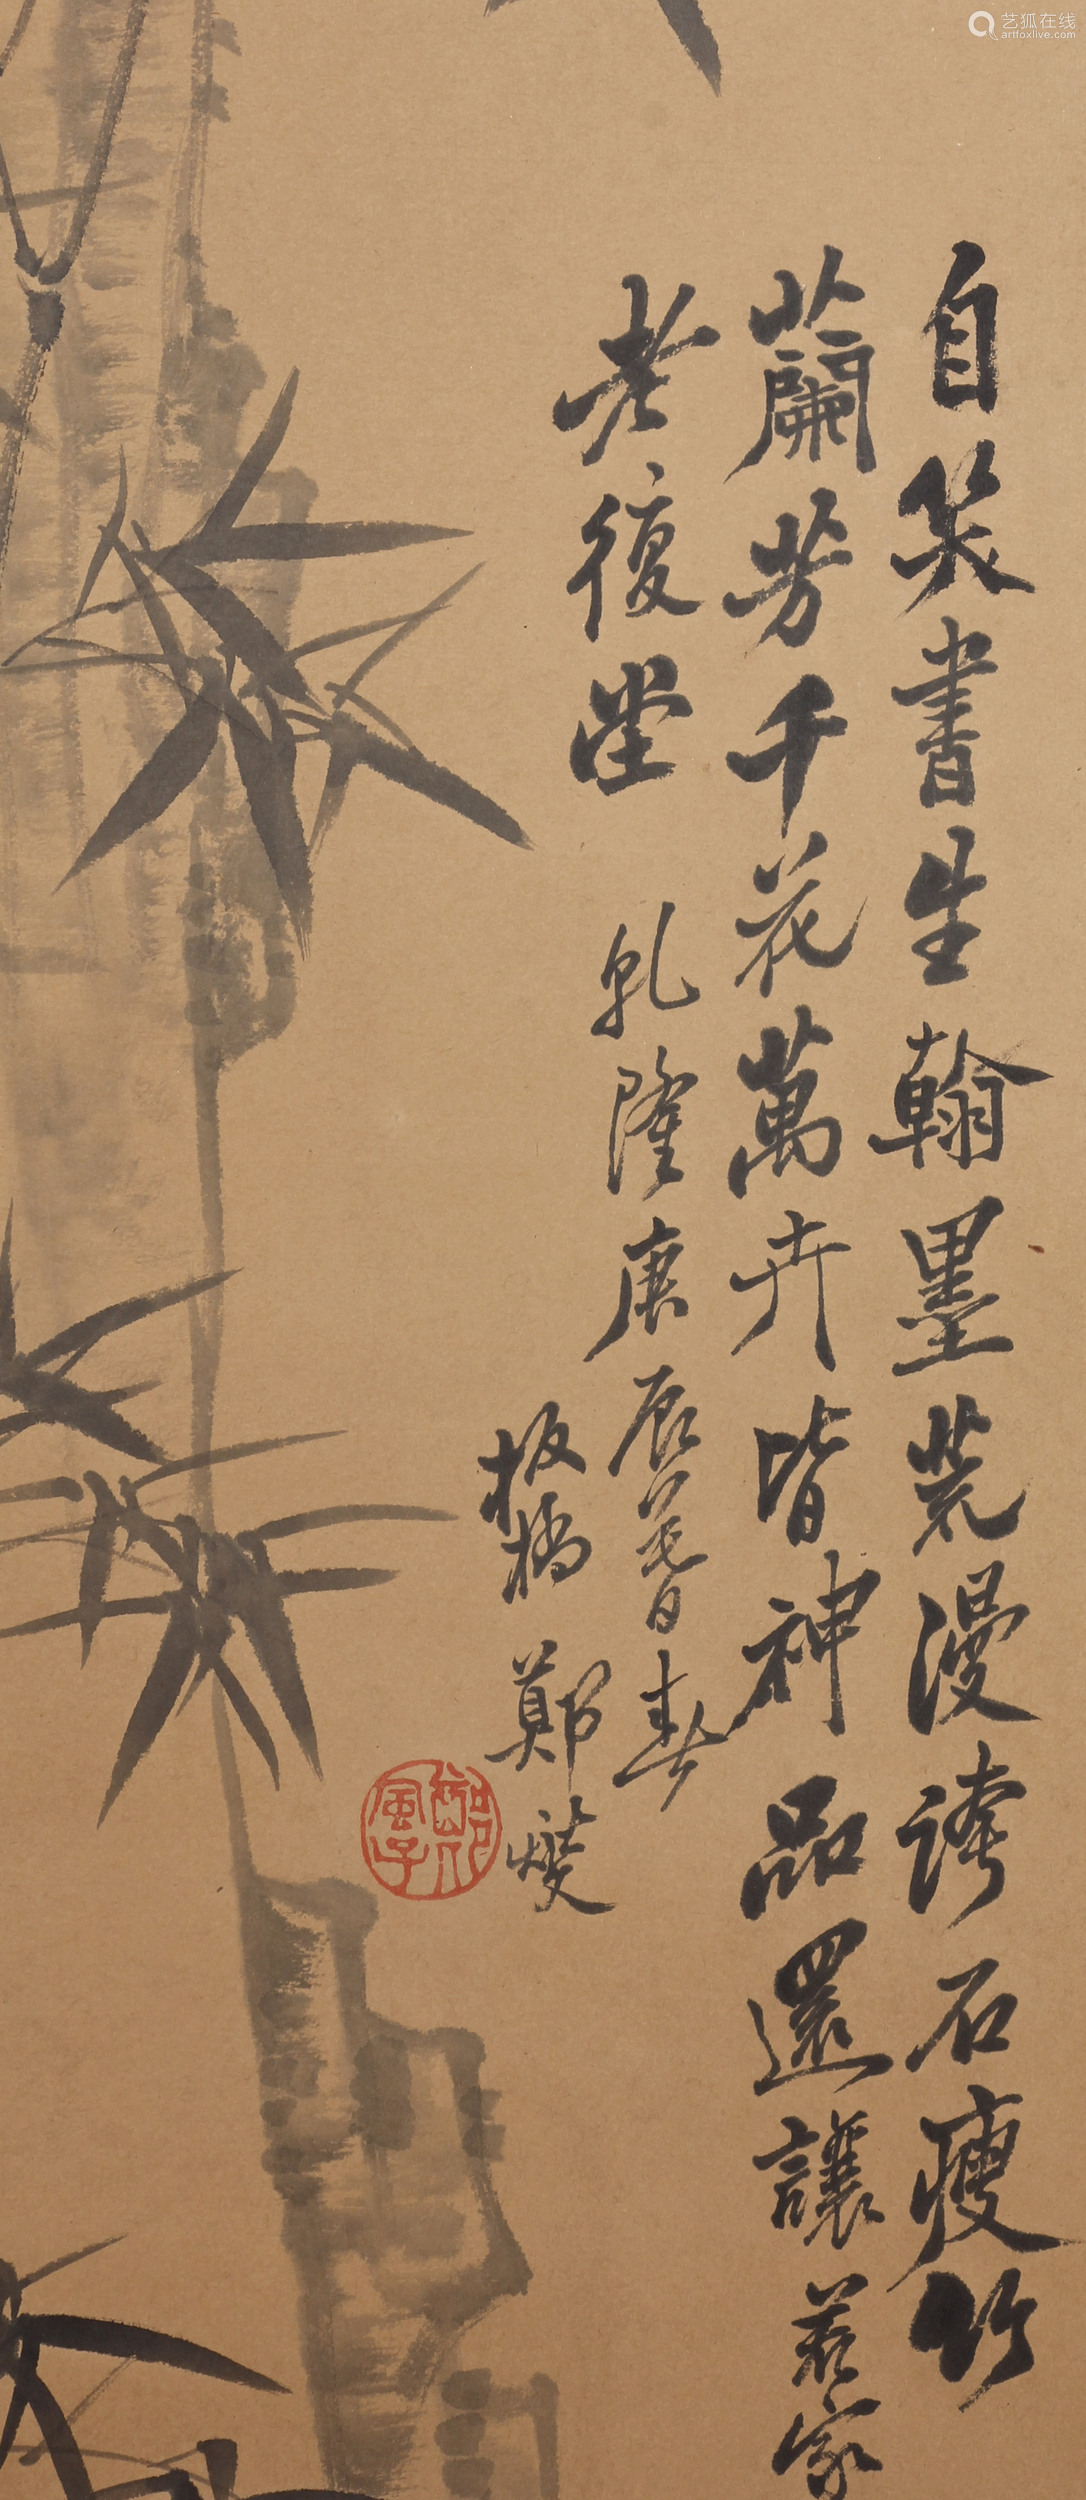 自笑書生翰墨荒漫誇石瘦竹
蘭芳千花萬卉皆神品還讓若家
老復堂
乾隆庚辰暮春
板橋鄭燮
鄭風子
艺狐在线
artfoxlive.com